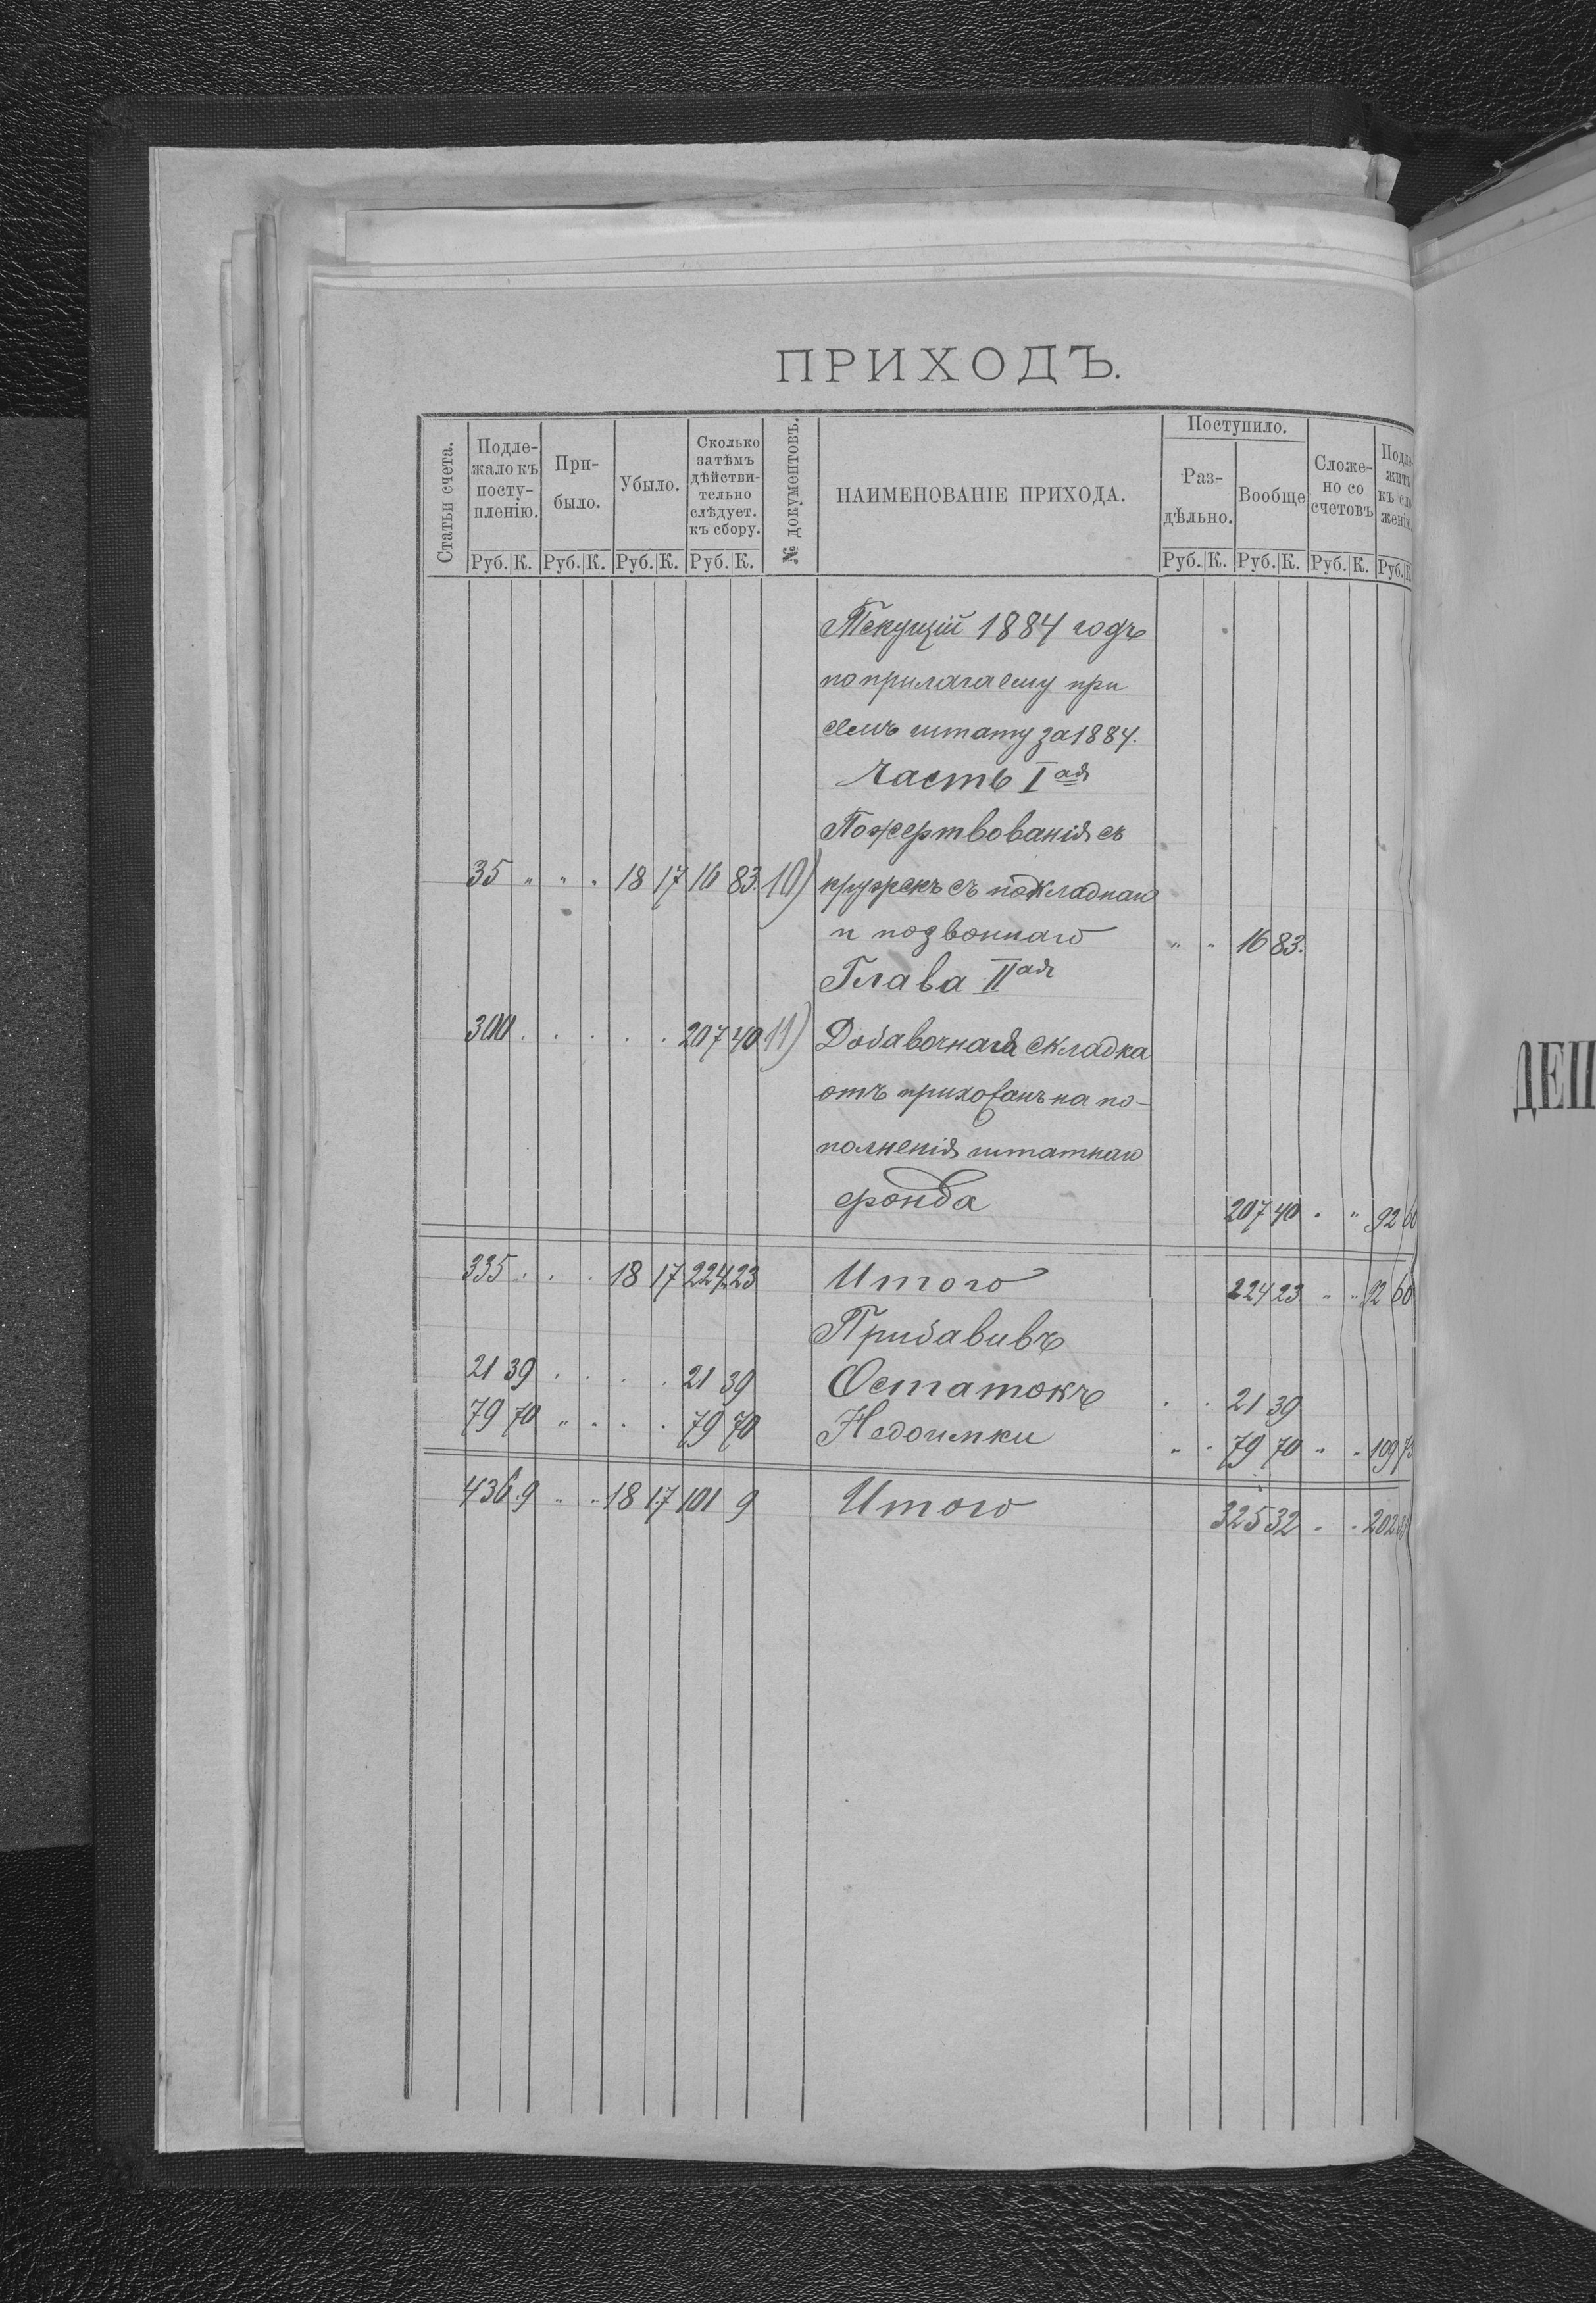 ПРИХОДЪ.
Статьи счета.
Подле-
жало къ
посту-
пленію.
При-
было.
Убыло.
Сколько
затѣмъ
дѣйстви-
тельно
слѣдует.
къ сбору.
№ документовъ.
НАИМЕНОВАНІЕ ПРИХОДА.
Поступило.
Раз-
дѣльно.
Вообще
Сложе-
но со
счетовъ
Подле-
житъ
къ сло-
женію
Руб. К. Руб. К. Руб. К. Руб. К. Руб. К. Руб. К. Руб. К. Руб. К
Текущій 1884 годъ
по прилагаему при
семъ штату за 1884.
Часть Iая
Пожертвованія съ
35 " " " 18 17 16 83. 10) кружекъ съ подкладнаго
и подзвоннаго " " 16 83.
Глава IIая
300 . . . . . 207 40 11) Добавочная складка
отъ прихожанъ на по-
полненія штатнаго
фонда 207 40 . " 92 60
335 . . . 18 17 224 23 Итого 224 23 " " 92 60
Прибавивъ
21 39 . . . . 21 39 Остатокъ . . 21 39
79 70 " . . . 79 70 Недоимки " " 79 70 " . 109 73
436 9 " . 18 17 101 9 Итого 325 32 . . 202 33
ДЕП